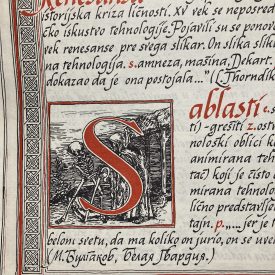 Renesansa
istorijska kriza ličnosti. XV vek se neposred
čko iskustvo tehnologije. Pojavili su se ponov
vek renesanse pre svega slikar. On slika slika
na tehnologija. s. amneza, mašina, Dekart,
dokazao da je ona postojala..."(L. Thorndik
Sablasti
ti) - grešiti z. osta
nološki oblici k
animirana teh
tac) koji je čisto d
mirana tehnolo
lično predstavlje
tajn. p. „... jer je
belom svetu, da ma koliko on jurio, on se uve
(М. Булгаков, Белая Гвардия.)